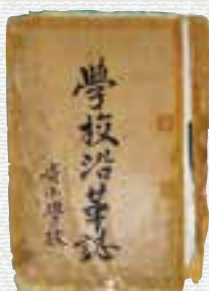 學校沿革誌
小學校